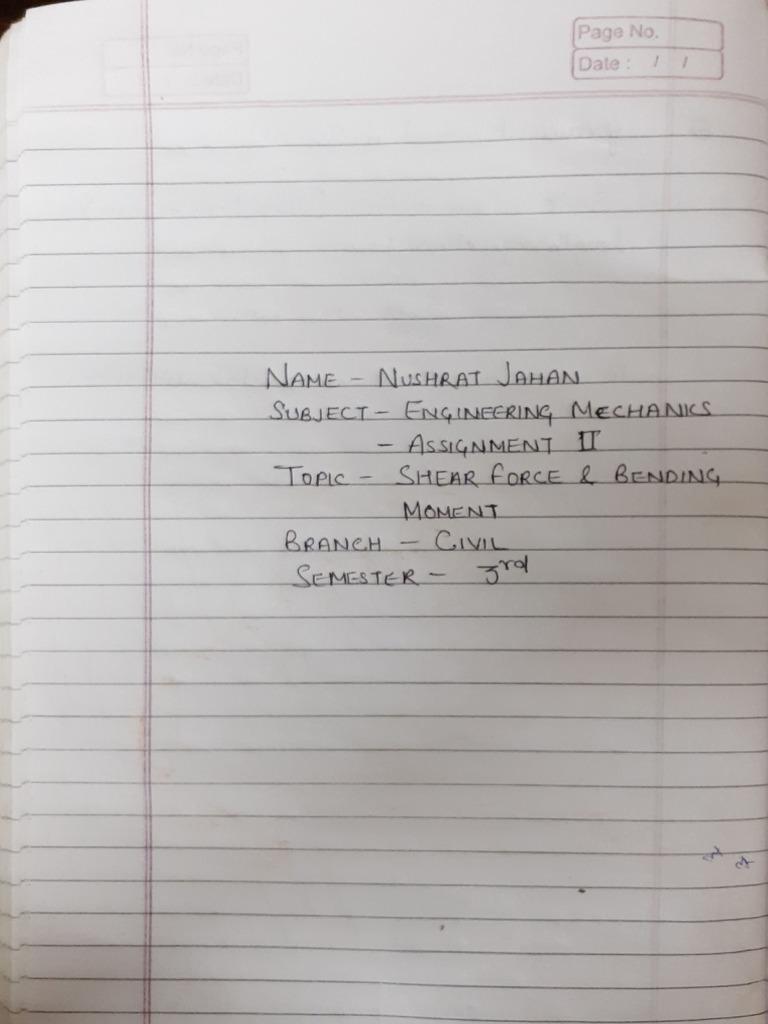 Page No.
Date : / /
NAME - NUSHRAT JAHAN
SUBJECT - ENGINEERING MECHANICS
- ASSIGNMENT II
TOPIC - SHEAR FORCE & BENDING
MOMENT
BRANCH - CIVIL
SEMESTER - 3rd